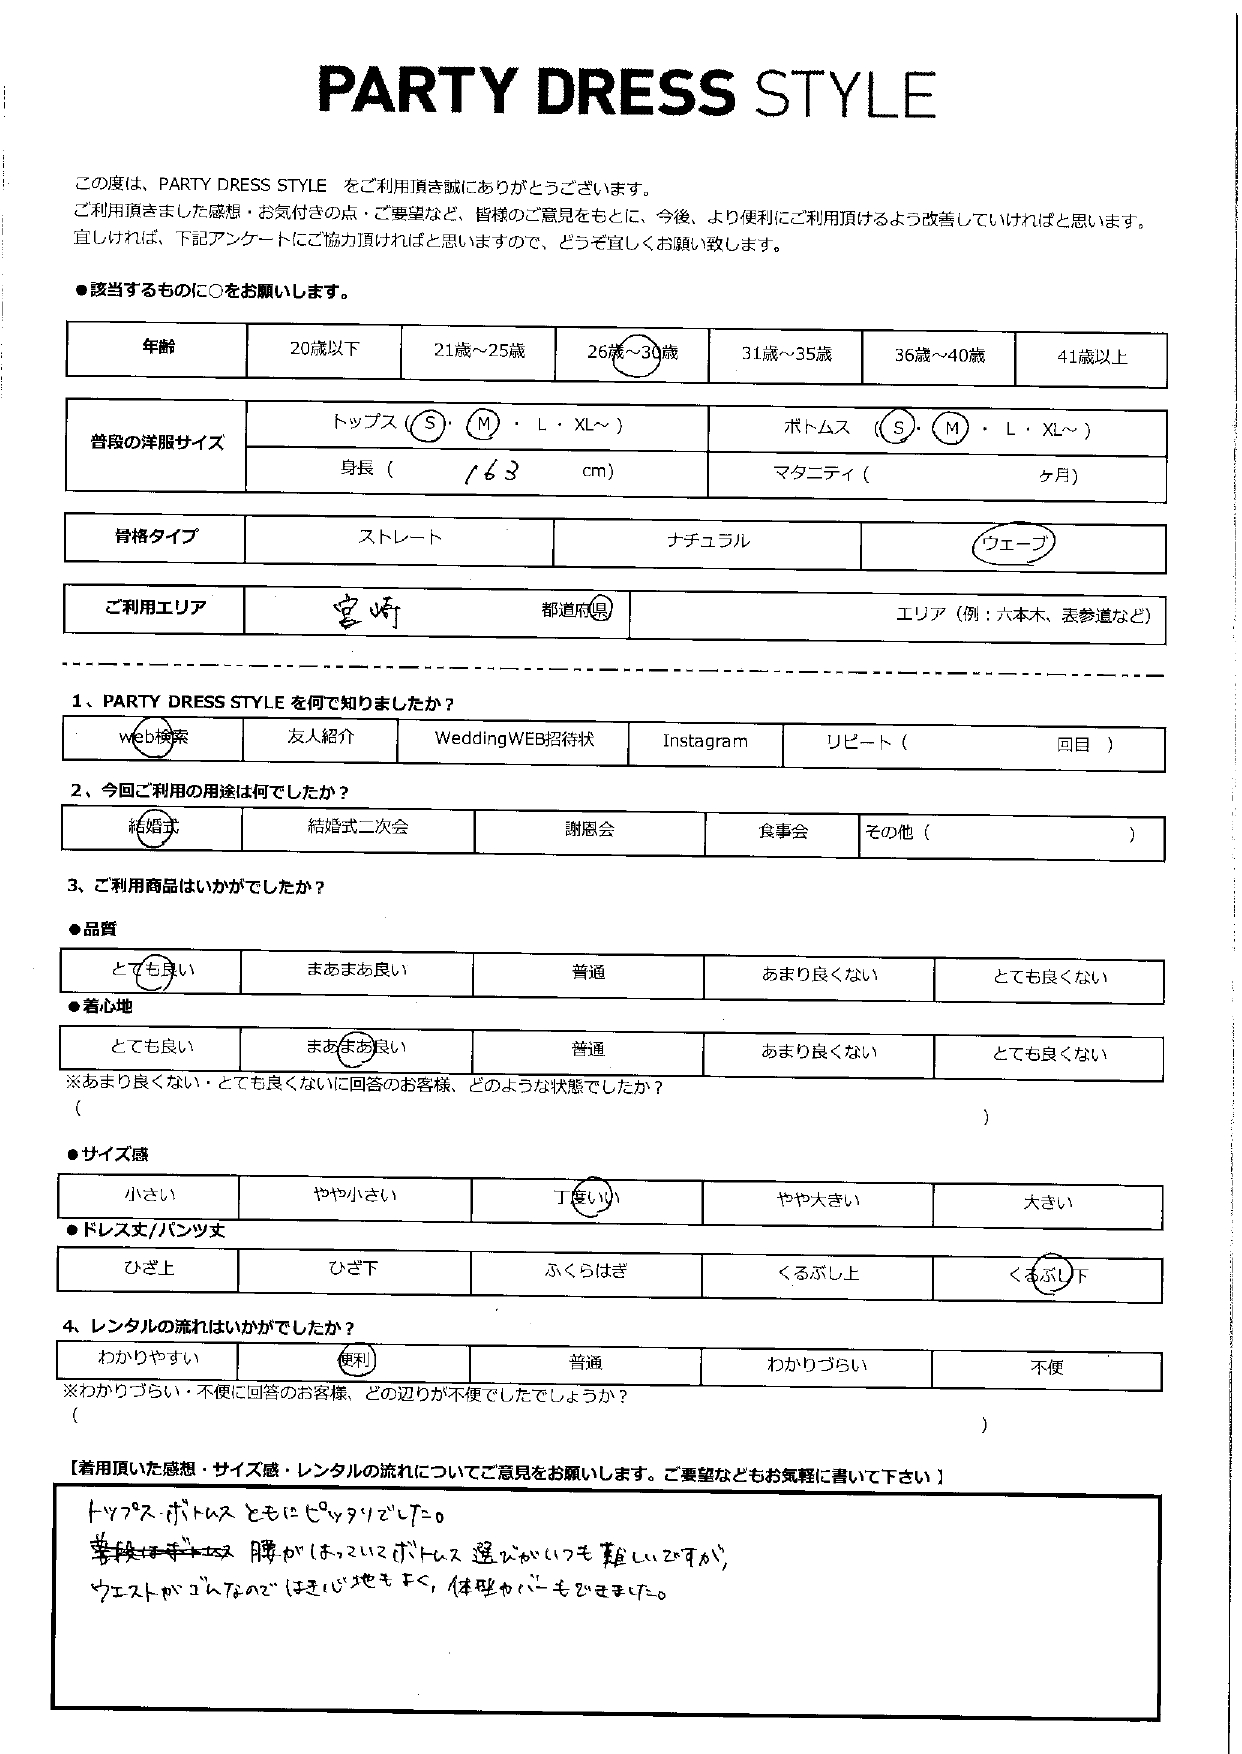 PARTY DRESS STYLE
この度は、PARTY DRESS STYLE をご利用頂き誠にありがとうございます。
ご利用頂きました感想・お気付きの点・ご要望など、皆様のご意見をもとに、今後、より便利にご利用頂けるよう改善していければと思います。
宜しければ、下記アンケートにご協力頂ければと思いますので、どうぞ宜しくお願い致します。
●該当するものに○をお願いします。
年齢 20歳以下 21歳～25歳 26歳～30歳 31歳～35歳 36歳～40歳 41歳以上
普段の洋服サイズ トップス (S・M・L・XL～) ボトムス (S・M・L・XL～)
身長 ( 163 cm) マタニティ ( ヶ月)
骨格タイプ ストレート ナチュラル ウェーブ
ご利用エリア 宮崎 都道府県 エリア（例：六本木、表参道など）
1、PARTY DRESS STYLE を何で知りましたか？
web検索 友人紹介 WeddingWEB招待状 Instagram リピート ( 回目 )
2、今回ご利用の用途は何でしたか？
結婚式 結婚式二次会 謝恩会 食事会 その他 ( )
3、ご利用商品はいかがでしたか？
●品質
とても良い まあまあ良い 普通 あまり良くない とても良くない
●着心地
とても良い まあまあ良い 普通 あまり良くない とても良くない
※あまり良くない・とても良くないに回答のお客様、どのような状態でしたか？
( )
●サイズ感
小さい やや小さい 丁度いい やや大きい 大きい
●ドレス丈/パンツ丈
ひざ上 ひざ下 ふくらはぎ くるぶし上 くるぶし下
4、レンタルの流れはいかがでしたか？
わかりやすい 便利 普通 わかりづらい 不便
※わかりづらい・不便に回答のお客様、どの辺りが不便でしたでしょうか？
( )
【着用頂いた感想・サイズ感・レンタルの流れについてご意見をお願いします。ご要望などもお気軽に書いて下さい】
トップス・ボトムス ともにピッタリでした。
普段はボトムス 腰がはっていてボトムス選びがいつも難しいですが、
ウエストがゴムなのではき心地もよく、体型カバーもできました。